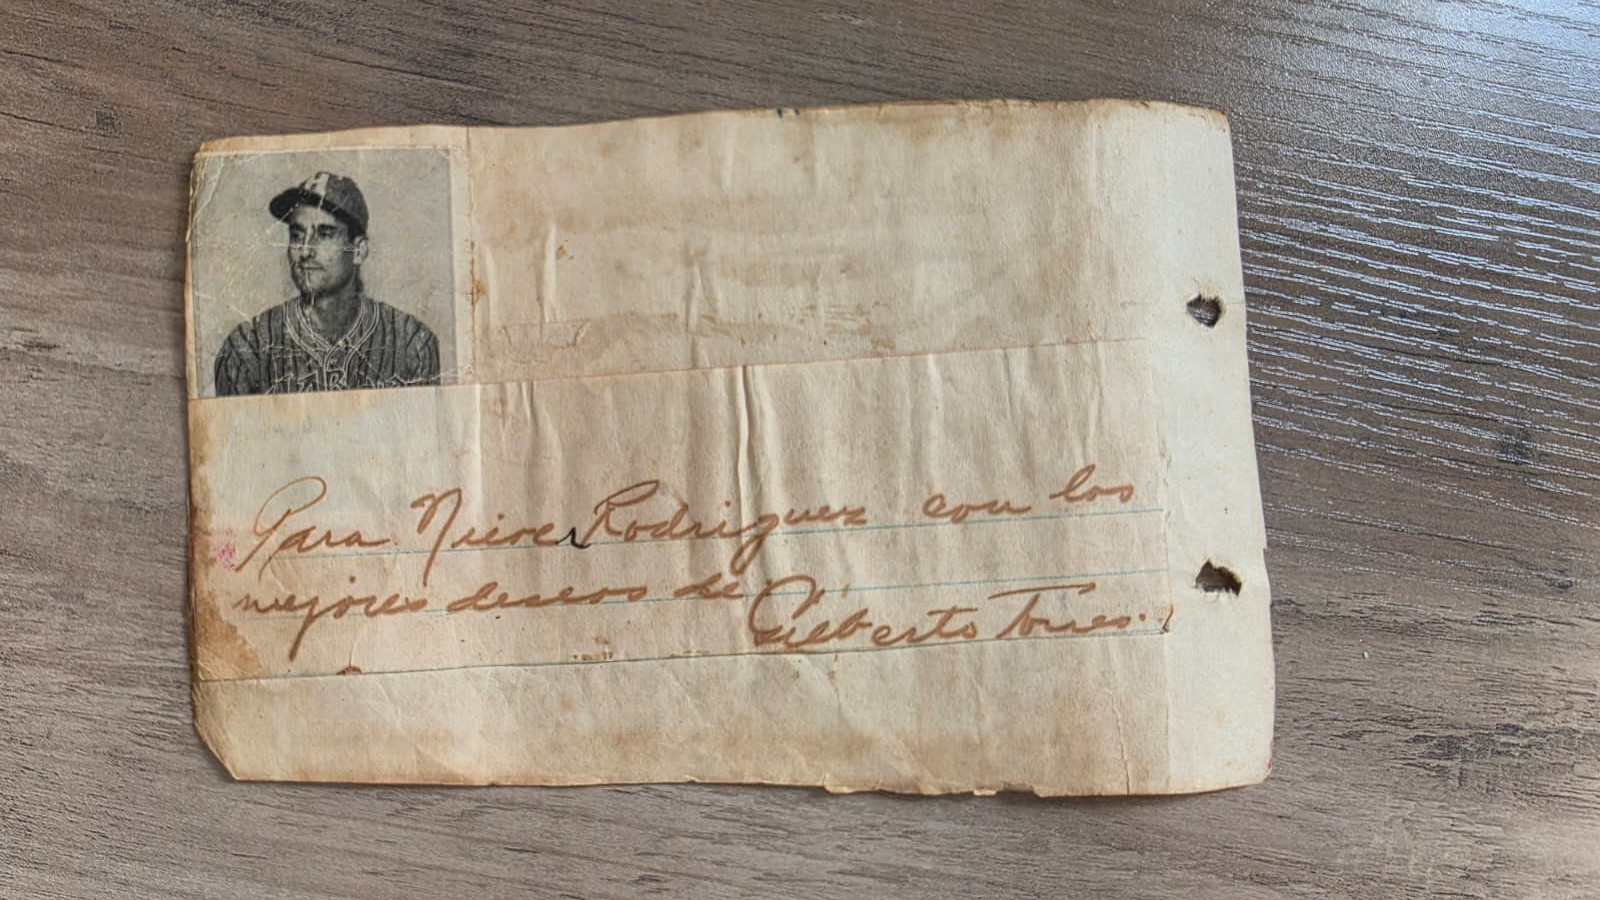 Para Nieves Rodriguez con los
mejores deseos de
Gilberto Torres.